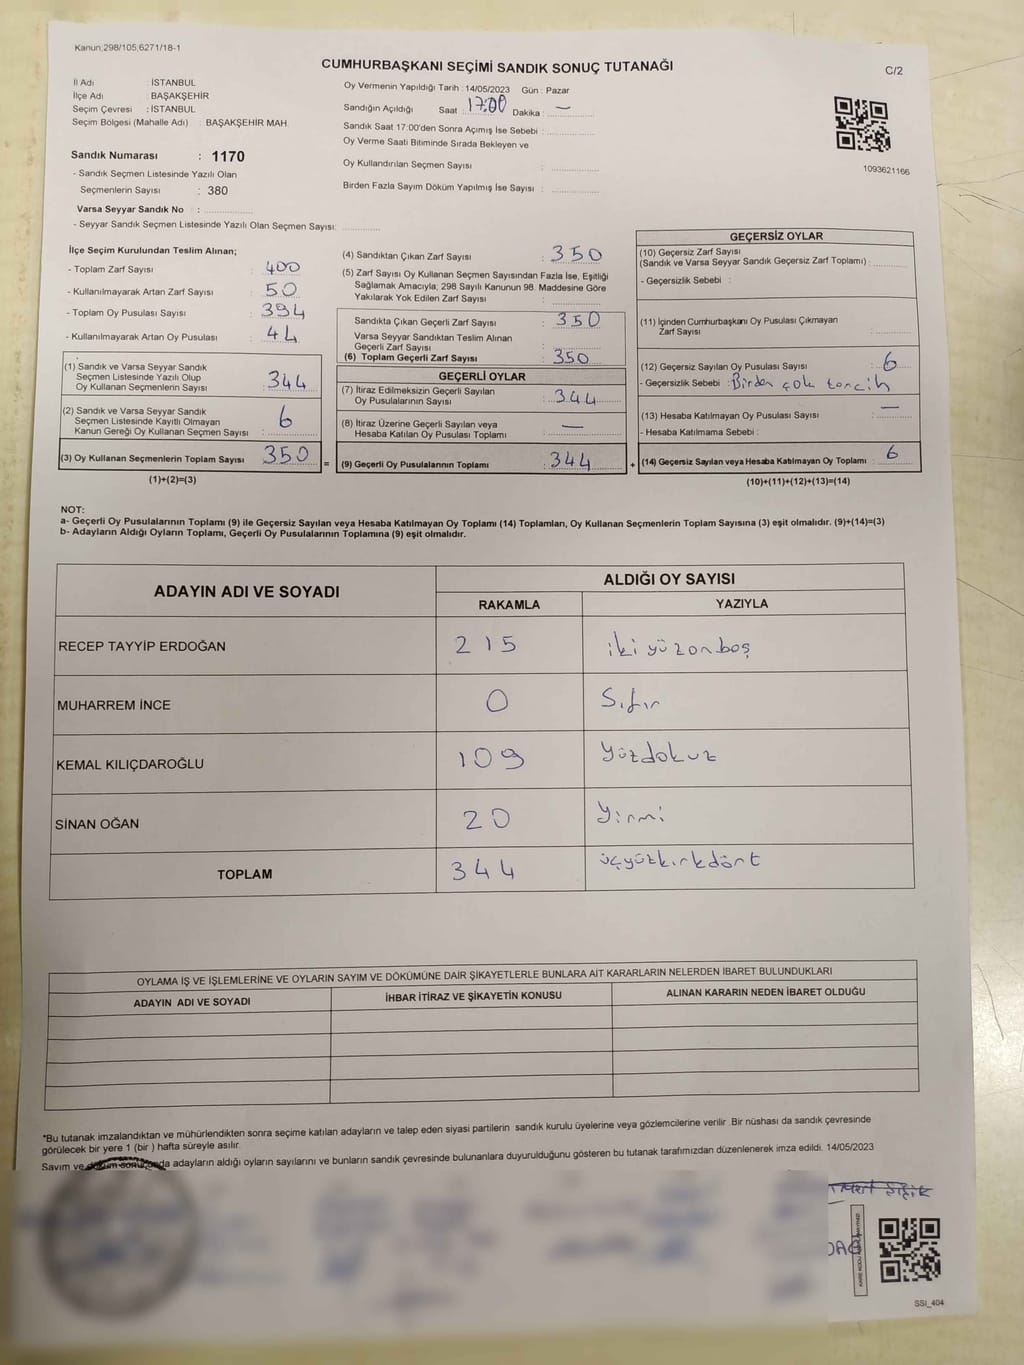 Kanun,298/105,6271/18-1
CUMHURBAŞKANI SEÇİMİ SANDIK SONUÇ TUTANAĞI
C/2
İl Adı : İSTANBUL
İlçe Adı : BAŞAKŞEHİR
Seçim Çevresi : İSTANBUL
Seçim Bölgesi (Mahalle Adı) : BAŞAKŞEHİR MAH.
Sandık Numarası : 1170
- Sandık Seçmen Listesinde Yazılı Olan
Seçmenlerin Sayısı : 380
Varsa Seyyar Sandık No :
- Seyyar Sandık Seçmen Listesinde Yazılı Olan Seçmen Sayısı:
Oy Vermenin Yapıldığı Tarih : 14/05/2023 Gün : Pazar
Sandığın Açıldığı Saat : 17:00 Dakika : —
Sandık Saat 17:00'den Sonra Açımış İse Sebebi :
Oy Verme Saati Bitiminde Sırada Bekleyen ve
Oy Kullandırılan Seçmen Sayısı :
Birden Fazla Sayım Döküm Yapılmış İse Sayısı :
1093621166
İlçe Seçim Kurulundan Teslim Alınan;
- Toplam Zarf Sayısı : 400
- Kullanılmayarak Artan Zarf Sayısı : 50
- Toplam Oy Pusulası Sayısı : 394
- Kullanılmayarak Artan Oy Pusulası : 44
(1) Sandık ve Varsa Seyyar Sandık
Seçmen Listesinde Yazılı Olup
Oy Kullanan Seçmenlerin Sayısı : 344
(2) Sandık ve Varsa Seyyar Sandık
Seçmen Listesinde Kayıtlı Olmayan
Kanun Gereği Oy Kullanan Seçmen Sayısı : 6
(3) Oy Kullanan Seçmenlerin Toplam Sayısı 350 =
(1)+(2)=(3)
(4) Sandıktan Çıkan Zarf Sayısı : 350
(5) Zarf Sayısı Oy Kullanan Seçmen Sayısından Fazla İse, Eşitliği
Sağlamak Amacıyla; 298 Sayılı Kanunun 98. Maddesine Göre
Yakılarak Yok Edilen Zarf Sayısı :
Sandıkta Çıkan Geçerli Zarf Sayısı : 350
Varsa Seyyar Sandıktan Teslim Alınan
Geçerli Zarf Sayısı :
(6) Toplam Geçerli Zarf Sayısı : 350
GEÇERLİ OYLAR
(7) İtiraz Edilmeksizin Geçerli Sayılan
Oy Pusulalarının Sayısı : 344
(8) İtiraz Üzerine Geçerli Sayılan veya
Hesaba Katılan Oy Pusulası Toplamı : —
(9) Geçerli Oy Pusulalarının Toplamı : 344 +
GEÇERSİZ OYLAR
(10) Geçersiz Zarf Sayısı
(Sandık ve Varsa Seyyar Sandık Geçersiz Zarf Toplamı) :
- Geçersizlik Sebebi :
(11) İçinden Cumhurbaşkanı Oy Pusulası Çıkmayan
Zarf Sayısı :
(12) Geçersiz Sayılan Oy Pusulası Sayısı : 6
- Geçersizlik Sebebi : Birden çok tercih
(13) Hesaba Katılmayan Oy Pusulası Sayısı : —
- Hesaba Katılmama Sebebi :
(14) Geçersiz Sayılan veya Hesaba Katılmayan Oy Toplamı : 6
(10)+(11)+(12)+(13)=(14)
NOT:
a- Geçerli Oy Pusulalarının Toplamı (9) ile Geçersiz Sayılan veya Hesaba Katılmayan Oy Toplamı (14) Toplamları, Oy Kullanan Seçmenlerin Toplam Sayısına (3) eşit olmalıdır. (9)+(14)=(3)
b- Adayların Aldığı Oyların Toplamı, Geçerli Oy Pusulalarının Toplamına (9) eşit olmalıdır.
ADAYIN ADI VE SOYADI
ALDIĞI OY SAYISI
RAKAMLA YAZIYLA
RECEP TAYYİP ERDOĞAN 215 iki yüz on beş
MUHARREM İNCE 0 Sıfır
KEMAL KILIÇDAROĞLU 109 Yüzdokuz
SİNAN OĞAN 20 Yirmi
TOPLAM 344 üçyüzkırkdört
OYLAMA İŞ VE İŞLEMLERİNE VE OYLARIN SAYIM VE DÖKÜMÜNE DAİR ŞİKAYETLERLE BUNLARA AİT KARARLARIN NELERDEN İBARET BULUNDUKLARI
ADAYIN ADI VE SOYADI İHBAR İTİRAZ VE ŞİKAYETİN KONUSU ALINAN KARARIN NEDEN İBARET OLDUĞU
*Bu tutanak imzalandıktan ve mühürlendikten sonra seçime katılan adayların ve talep eden siyasi partilerin sandık kurulu üyelerine veya gözlemcilerine verilir. Bir nüshası da sandık çevresinde
görülecek bir yere 1 (bir ) hafta süreyle asılır.
Sayım ve döküm sonucunda adayların aldığı oyların sayılarını ve bunların sandık çevresinde bulunanlara duyurulduğunu gösteren bu tutanak tarafımızdan düzenlenerek imza edildi. 14/05/2023
SSI_404